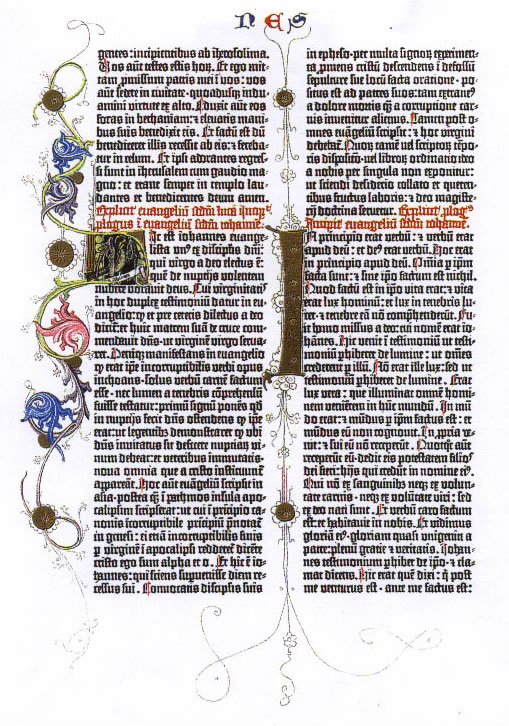 N E S
gentes: incipientibus ab iherosolima.
Vos aūt testes estis horū. Et ego mit-
tam ꝓmissum patris mei ī vos: vos
aūt sedete in civitate · quoadusqꝫ indu-
amini virtute ex alto. Eduxit aūt eos
foras in bethaniam: et elevatis mani-
bus suis benedixit eis. Et factū est dū
benediceret illis recessit ab eis: et fereba-
tur in celum. Et ipsi adorantes regres-
si sunt in iherusalem cum gaudio ma-
gno: et erant semper in templo lau-
dantes et benedicentes deum amen.
Explicit euangeliū scdm lucā Incipit
plogus ī euangeliū scdm iohannē.
Hic est iohannes euange-
lista un⁹ ex discipl̄is dn̄i:
qui virgo a deo electus ē:
quē de nuptijs volentem
nubere vocavit deus. Cui virginitatꝭ
in hoc duplex testimoniū datur in eu-
angelio: ꝙ et pre ceteris dilectus a deo
dicit̄: et huic matrem suā de cruce com-
mendavit dn̄s · ut virginē virgo serva-
ret. Deniqꝫ manifestans in euangelio
ꝙ erat ip̄e incorruptibilis verbi opus
inchoans · solus verbū carnē factum
esse · nec lumen a tenebris cōprehensū
fuisse testatur: primū signū ponēs qd̄
in nuptijs fecit dn̄s ostendens ꝙ ip̄e
erat: ut legentibꝫ demonstraret ꝙ ubi
dn̄s invitatus sit deficere nuptiaꝝ vi-
num debeat: et veteribus immutatis
nova omnia que a cristo instituunt̄
appareāt. Hoc aūt euangeliū scripsit in
asia · postea q̄ꝫ ī pathmos insula apo-
calipsim scripserat: ut cui ī prīcipio ca-
nonis īcorruptibile prīcipiū p̄notat̄
in genesi: ei etiā incorruptibilis finis
ꝑ virginē ī apocalipsi redderet̄ dicēte
cristo ego sum alpha et o. Et hic ē io-
hannes: qui sciens supvenisse diem re-
cessus sui. Convocatis discipl̄is suis
in epheso · per multa signoꝝ experimen-
ta ꝓmens cristū descendens ī defossū
sepulture sue locū facta oratione · po-
situs est ad patres suos: tam extrane⁹
a dolore mortis q̄ꝫ a corruptione car-
nis invenitur alienus. Tamen post o-
mnes euāgeliū scripsit: et hoc virgini
debebat̄. Quoꝝ tamen vel scriptoꝝ tēpo-
ris dispositō · vel libroꝝ ordinatio ideo
a nobis per singula non exponitur:
ut sciendi desiderio collato et queren-
tibus fructus laboris: et deo magiste-
rij doctrina servetur. Explicit plog⁹
Incipit euangeliū scdm iohannē.
In principio erat verbū: et verbū erat
apud deū: et de⁹ erat verbū. Hoc erat
in principio apud deū. Om̄ia ꝑ ip̄m
facta sunt: et sine ip̄o factum est nichil.
Quod factū est in ip̄o vita erat: et vita
erat lux hominū: et lux in tenebris lu-
cet · et tenebre eā nō comp̄henderūt. Fu-
it homo missus a deo: cui nomē erat io-
hānes. Hic venit ī testimoniū ut testi-
moniū ꝑhiberet de lumine · ut om̄es
crederent ꝑ illū. Nō erat ille lux: sed ut
testimoniū ꝑhiberet de lumine. Erat
lux vera: que illuminat omnē homi-
nem venientē in hūc mundū. In mū-
do erat: et mūdus ꝑ ip̄m factus est: et
mūdus eū non cognovit. In ꝓpria ve-
nit: et sui eū nō receperūt. Quotqͦt aūt
receperūt eū · dedit eis potestatem filios
dei fieri: hijs qui credūt in nomine ei⁹.
Qui nō ex sanguinibꝫ neqꝫ ex volun-
tate carnis · neqꝫ ex volūtate viri: sed
ex deo nati sunt. Et verbū caro factum
est: et habitavit in nobis. Et vidimus
gloriā ei⁹ · gloriam quasi unigeniti a
patre: plenū gratie et veritatis. Iohan-
nes testimonium ꝑhibet de ip̄o · et cla-
mat dicens. Hic erat quē dixi: q̄ post
me venturus est · ante me factus est: